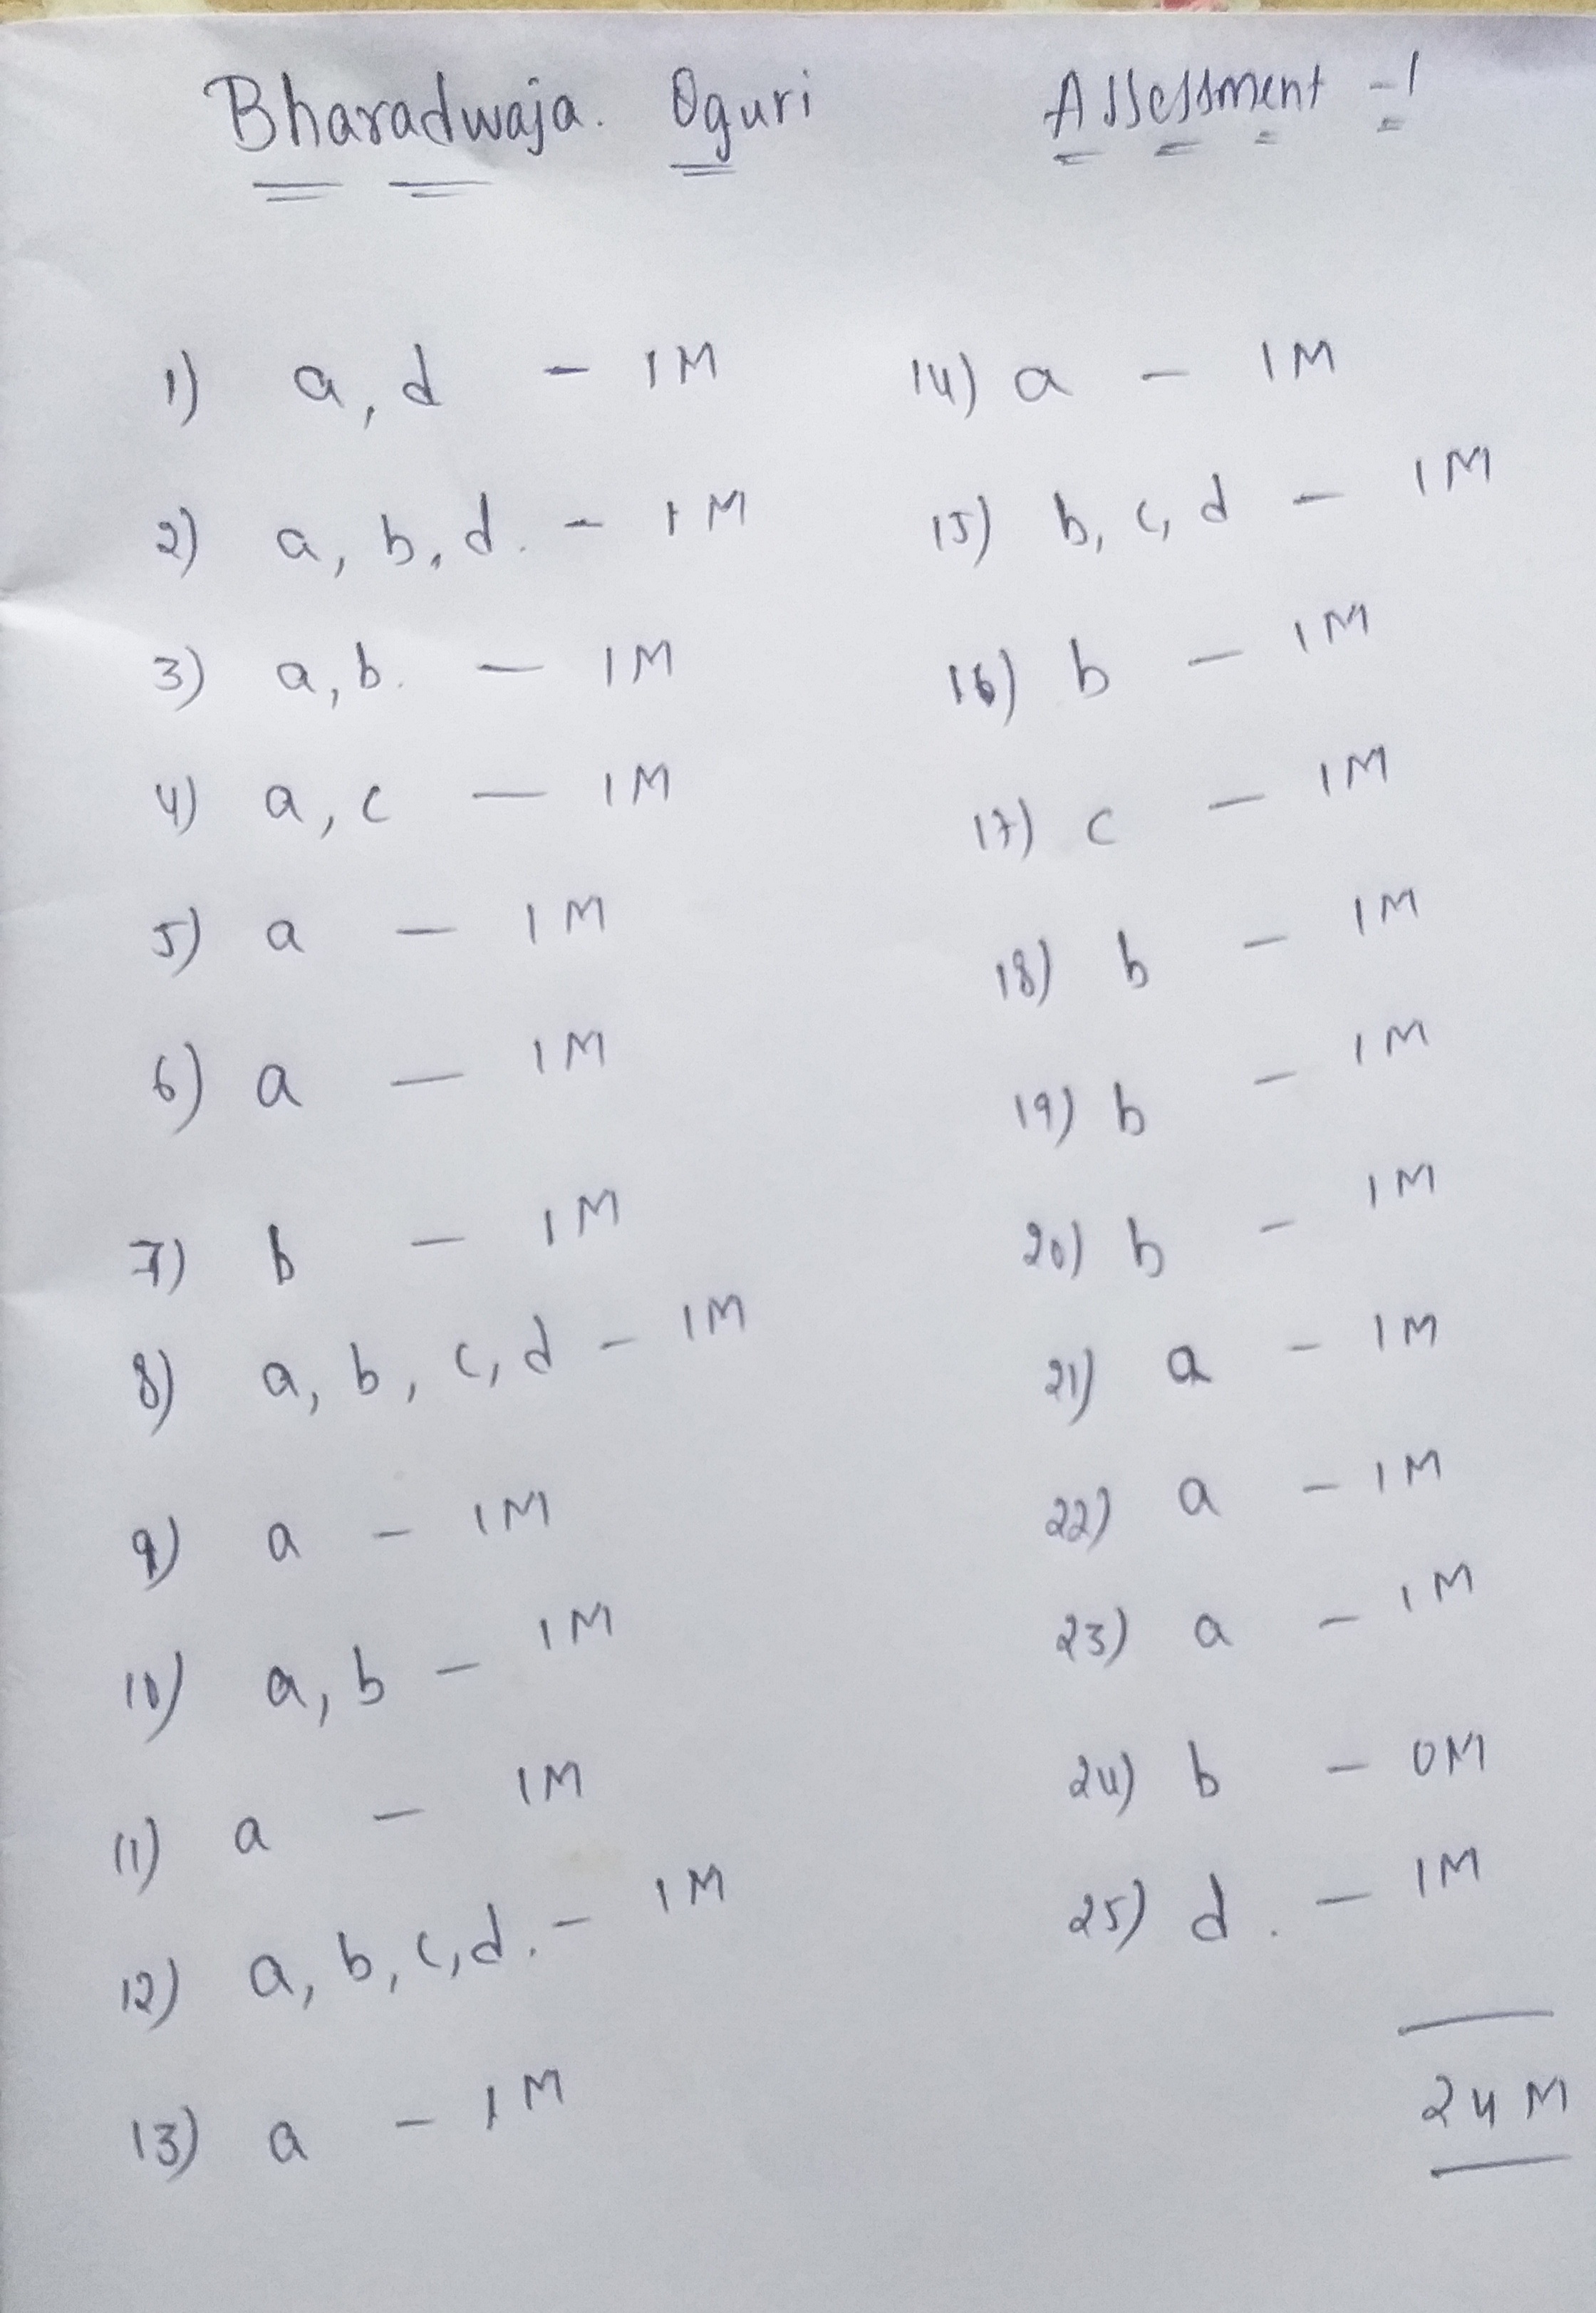 Bharadwaja. Oguri
Assessment - 1
1) a, d - 1M
2) a, b, d. - 1M
3) a, b. - 1M
4) a, c - 1M
5) a - 1M
6) a - 1M
7) b - 1M
8) a, b, c, d - 1M
9) a - 1M
10) a, b - 1M
11) a - 1M
12) a, b, c, d. - 1M
13) a - 1M
14) a - 1M
15) b, c, d - 1M
16) b - 1M
17) c - 1M
18) b - 1M
19) b - 1M
20) b - 1M
21) a - 1M
22) a - 1M
23) a - 1M
24) b - 0M
25) d. - 1M
24M